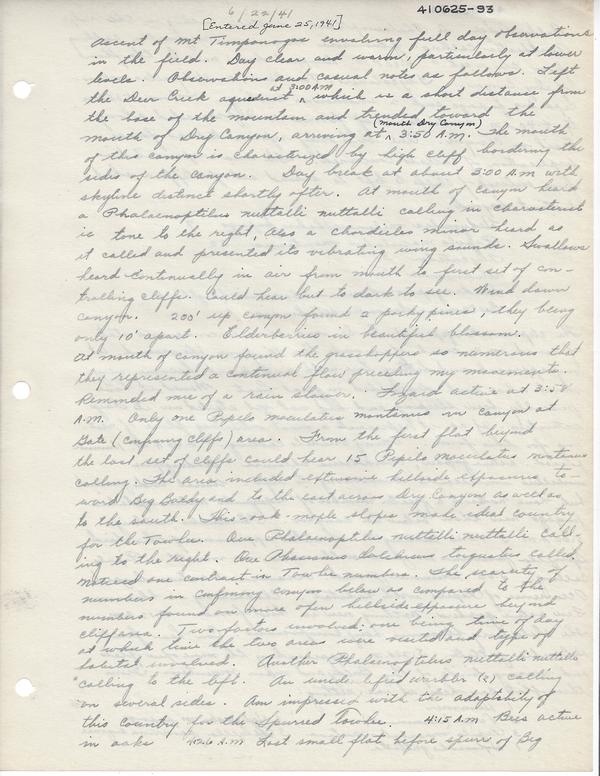 6/22/41
410625-93
[Entered June 25, 1941]
Ascent of Mt Timpanogos involving full day observations
in the field. Day clear and warm, particularly at lower
levels. Observations and casual notes as follows. Left
at 3:00 A.M
the Deer Creek aqueduct ^ which is a short distance from
the base of the mountain and trended toward the
(mouth Dry Canyon)
mouth of Dry Canyon, arriving at ^ 3:50 A.M. The mouth
of this canyon is characterized by high cliff bordering the
sides of the canyon. Day break at about 3:00 A.M with
skyline distinct shortly after. At mouth of canyon heard
a Phalaenoptilus nuttalli nuttalli calling in characterist
ic tone to the right, Also a Chordeiles minor heard as
it called and presented its vibrating wing sounds. Swallows
heard continually in air from mouth to first set of con-
trolling cliffs. Could hear but to dark to see. Wind down
canyon. 200' up canyon found a porkypines, they being
only 10' apart. Elderberries in beautiful blossom.
At mouth of canyon found the grasshoppers so numerous that
they represented a continual flow preceding my movements.
Reminded me of a rain shower. Lizard active at 3:58
A.M. Only one Pipilo maculatus montanus in canyon at
Gate (confining cliffs) area. From the first flat beyond
the last set of cliffs could hear 15 Pipilo maculatus montanus
calling. The area included extensive hillside exposures to-
ward Big Baldy and to the east across Dry Canyon as well as
to the south. This oak-maple slopes made ideal country
for the Towhee. One Phalaenoptilus nuttalli nuttalli call-
ing to the right. One Phasianus torquatus called.
Noticed one contrast in Towhee numbers. The scarcity of
numbers in confining canyon below as compared to the
numbers found on more open hillside exposure beyond
cliff area. Two factors involved: one being time of day
at which time the two areas were visited and type of
habitat involved. Another Phalaenoptilus nuttalli nuttalli
calling to the left. An unidentified warbler (?) calling
on several sides. Am impressed with the adaptability of
this country for the Spurred Towhee. 4:15 A.M Bees active
in oaks 4:26 A.M Last small flat before spurs of Big